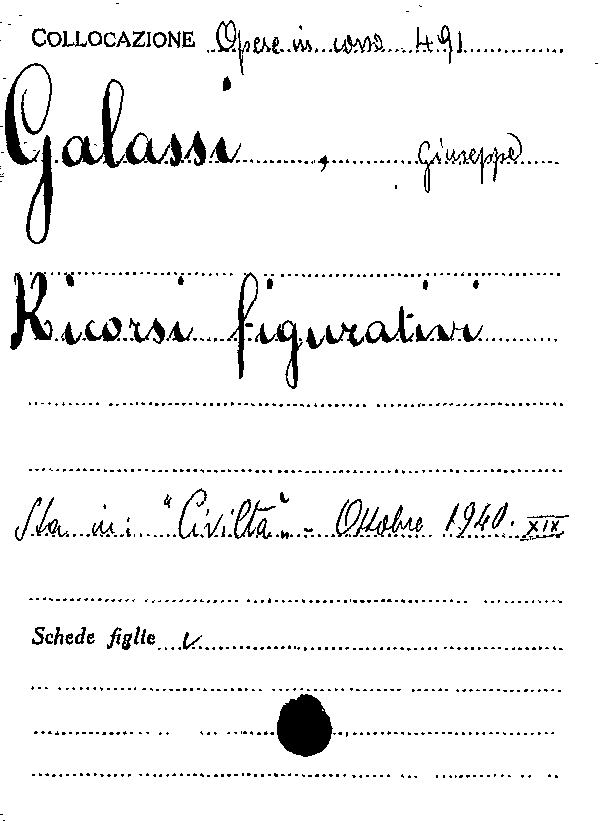 COLLOCAZIONE Opere in corso 491
Galassi, Giuseppe
Ricorsi figurativi
Sta in: "Civiltà" - Ottobre 1940. XIX
Schede figlie v